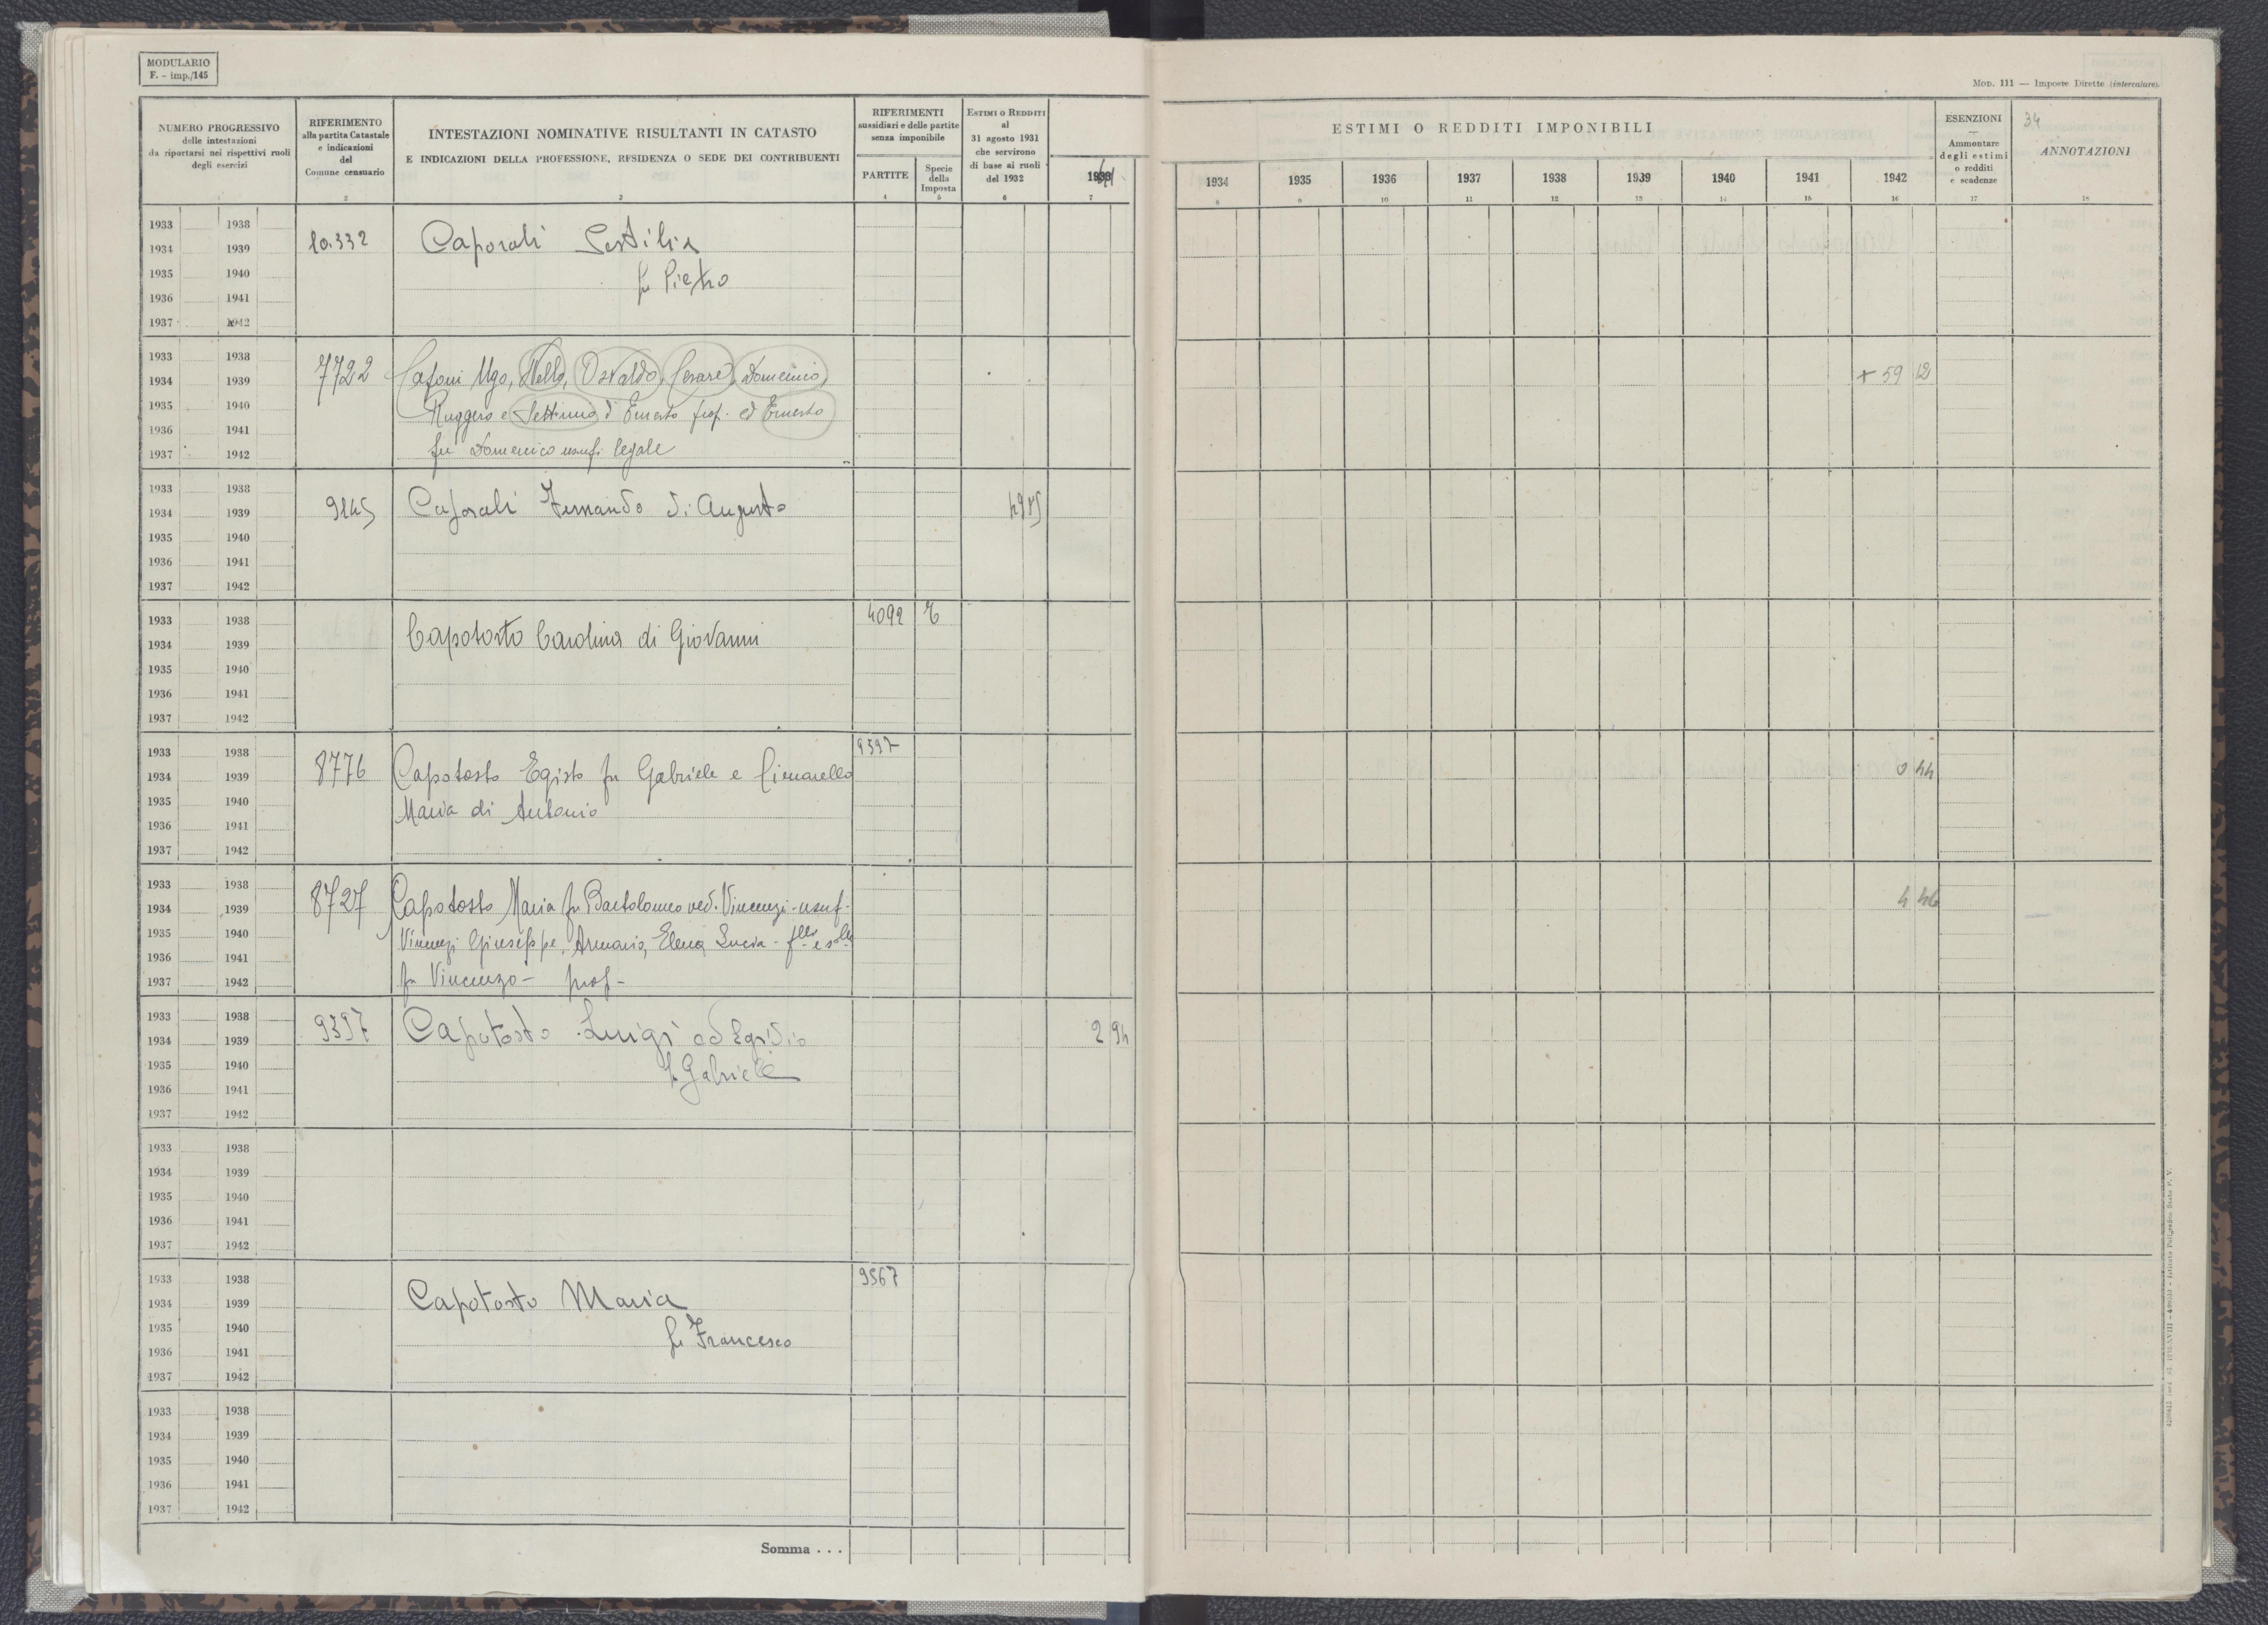 MODULARIO
F. - imp./145
MOD. 111 — Imposte Dirette (intercalare).
NUMERO PROGRESSIVO
delle intestazioni
da riportarsi nei rispettivi ruoli
degli esercizi
RIFERIMENTO
alla partita Catastale
e indicazioni
del
Comune censuario
INTESTAZIONI NOMINATIVE RISULTANTI IN CATASTO
E INDICAZIONI DELLA PROFESSIONE, RESIDENZA O SEDE DEI CONTRIBUENTI
RIFERIMENTI
sussidiari e delle partite
senza imponibile
PARTITE
Specie
della
Imposta
ESTIMI O REDDITI
al
31 agosto 1931
che servirono
di base ai ruoli
del 1932
1933
ESTIMI O REDDITI IMPONIBILI
1934 1935 1936 1937 1938 1939 1940 1941 1942
ESENZIONI
—
Ammontare
degli estimi
o redditi
e scadenze
34
ANNOTAZIONI
2 3 4 5 6 7 8 9 10 11 12 13 14 15 16 17 18
1933 1938
1934 1939 10.332 Caporali Sestilia
1935 1940 fu Pietro
1936 1941
1937 1942
1933 1938
1934 1939 7722 Ugo, Nello, Osvaldo, Cesare, Domenico, + 59 12
1935 1940 Ruggero e Settimio d'Ernesto prop. ed Ernesto
1936 1941
1937 1942 fu Domenico usuf. legale
1933 1938
1934 1939 9145 Caporali Fernando di Augusto
1935 1940
1936 1941
1937 1942
1933 1938 4092
1934 1939 Capotosto Carolina di Giovanni
1935 1940
1936 1941
1937 1942
1933 1938 9397
1934 1939 8776 Capotosto Egisto fu Gabriele e Cimarello 0 44
1935 1940 Maria di Antonio
1936 1941
1937 1942
1933 1938
1934 1939 8727 Capotosto Maria fu Bartolomeo ved. Vincenzi - usuf - 4 46
1935 1940 Vincenzi Giuseppe, Elena, Lucia - flli e slle
1936 1941
1937 1942 fu Vincenzo - prop -
1933 1938
1934 1939 9397 Capotosto Luigi ed Egidio 2 94
1935 1940 fu Gabriele
1936 1941
1937 1942
1933 1938
1934 1939
1935 1940
1936 1941
1937 1942
1933 1938 9567
1934 1939 Capotosto Maria
1935 1940 fu Francesco
1936 1941
1937 1942
1933 1938
1934 1939
1935 1940
1936 1941
1937 1942
Somma . . .